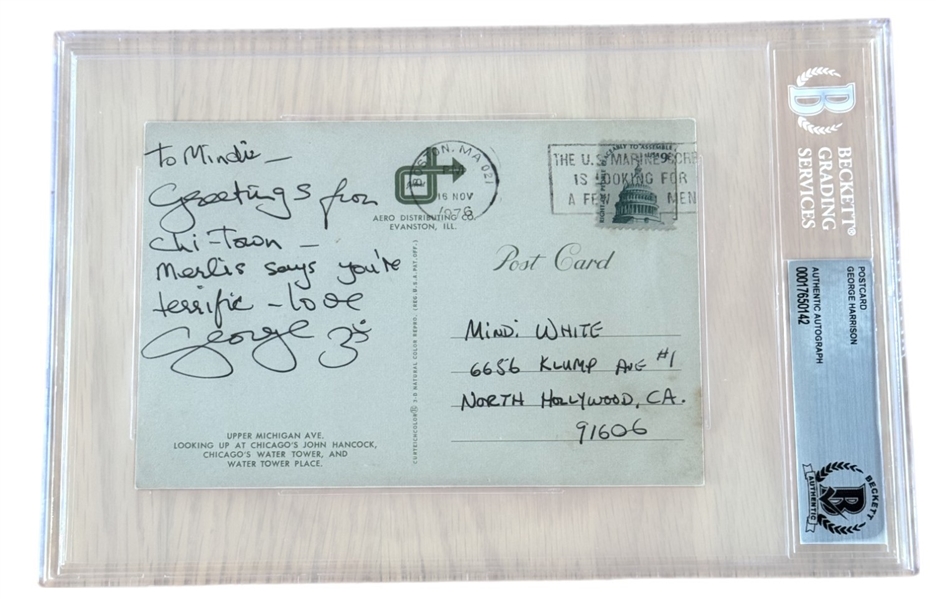 To Mindi –
Greetings from
Chi-Town –
Merlis says you're
terrific – love
George
UPPER MICHIGAN AVE.
LOOKING UP AT CHICAGO'S JOHN HANCOCK,
CHICAGO'S WATER TOWER, AND
WATER TOWER PLACE.
BOSTON, MA 021
16 NOV
AERO DISTRIBUTING CO.
EVANSTON, ILL.
THE U.S. MARINE CORP
IS LOOKING FOR
A FEW MEN
ABLY TO ASSEMBLE
USA 9c
Post Card
MINDI WHITE
6656 KLUMP AVE #1
NORTH HOLLYWOOD, CA.
91606
BECKETT®
GRADING
SERVICES
POSTCARD
GEORGE HARRISON
AUTHENTIC AUTOGRAPH
00017650142
BECKETT
AUTHENTIC